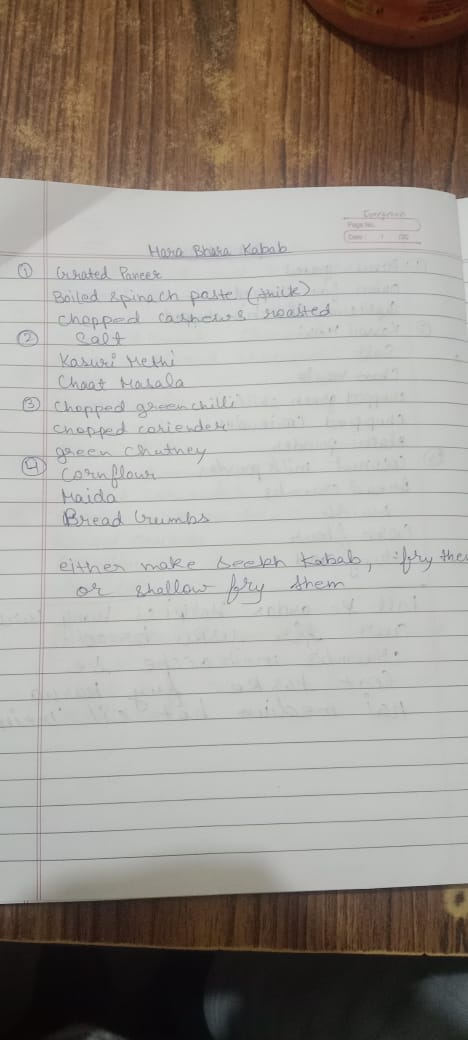 Evergreen
Page No.
Date : / /20
Hara Bhara Kabab
① Grated Paneer
Boiled spinach paste (thick)
Chopped cashews roasted
② Salt
Kasuri Methi
Chaat Masala
③ Chopped green chilli
chopped coriender
green chutney
④ Cornflour
Maida
Bread Crumbs
either make seekh Kabab, fry them
or shallow fry them